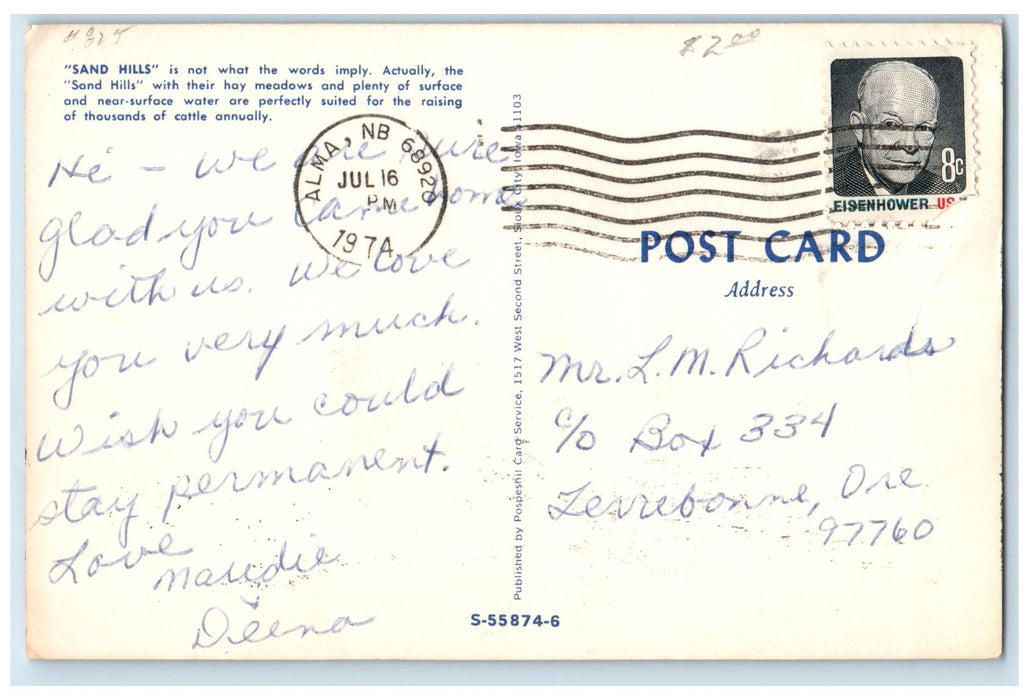 $2.00
"SAND HILLS" is not what the words imply. Actually, the
"Sand Hills" with their hay meadows and plenty of surface
and near-surface water are perfectly suited for the raising
of thousands of cattle annually.
Hi - we are sure
glad you came home
with us. We love
you very much.
Wish you could
stay permanent.
Love
Maudie
Deena
ALMA, NB 68920
JUL 16
PM
1974
Published by Pospeshil Card Service, 1517 West Second Street, Sioux City, Iowa 51103
8c
EISENHOWER US
POST CARD
Address
Mr. L. M. Richards
c/o Box 334
Terrebonne, Ore.
97760
S-55874-6